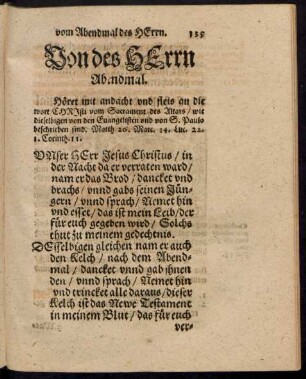 vom Abendmal des HErrn. 135
Von des HErrn
Abendmal.
Höret mit andacht vnd fleis an die
wort CHRJsti vom Sacrament des Altars / wie
dieselbigen von den Euangelisten vnd von S. Paulo
beschrieben sind. Matth 26. Marc. 14. Luc. 22.
1. Corinth. 11.
VNser HErr Jesus Christus / in
der Nacht da er verraten ward /
nam er das Brod / dancket vnd
brachs / vnnd gabs seinen Jün-
gern / vnnd sprach / Nemet hin
vnd esset / das ist mein Leib / der
für euch gegeben wird / Solchs
thut zu meinem gedechtnis.
DEsselbigen gleichen nam er auch
den Kelch / nach dem Abend-
mal / dancket vnnd gab jhnen
den / vnnd sprach / Nemet hin
vnd trincket alle daraus / dieser
Kelch ist das Newe Testament
in meinem Blut / das für euch
ver-